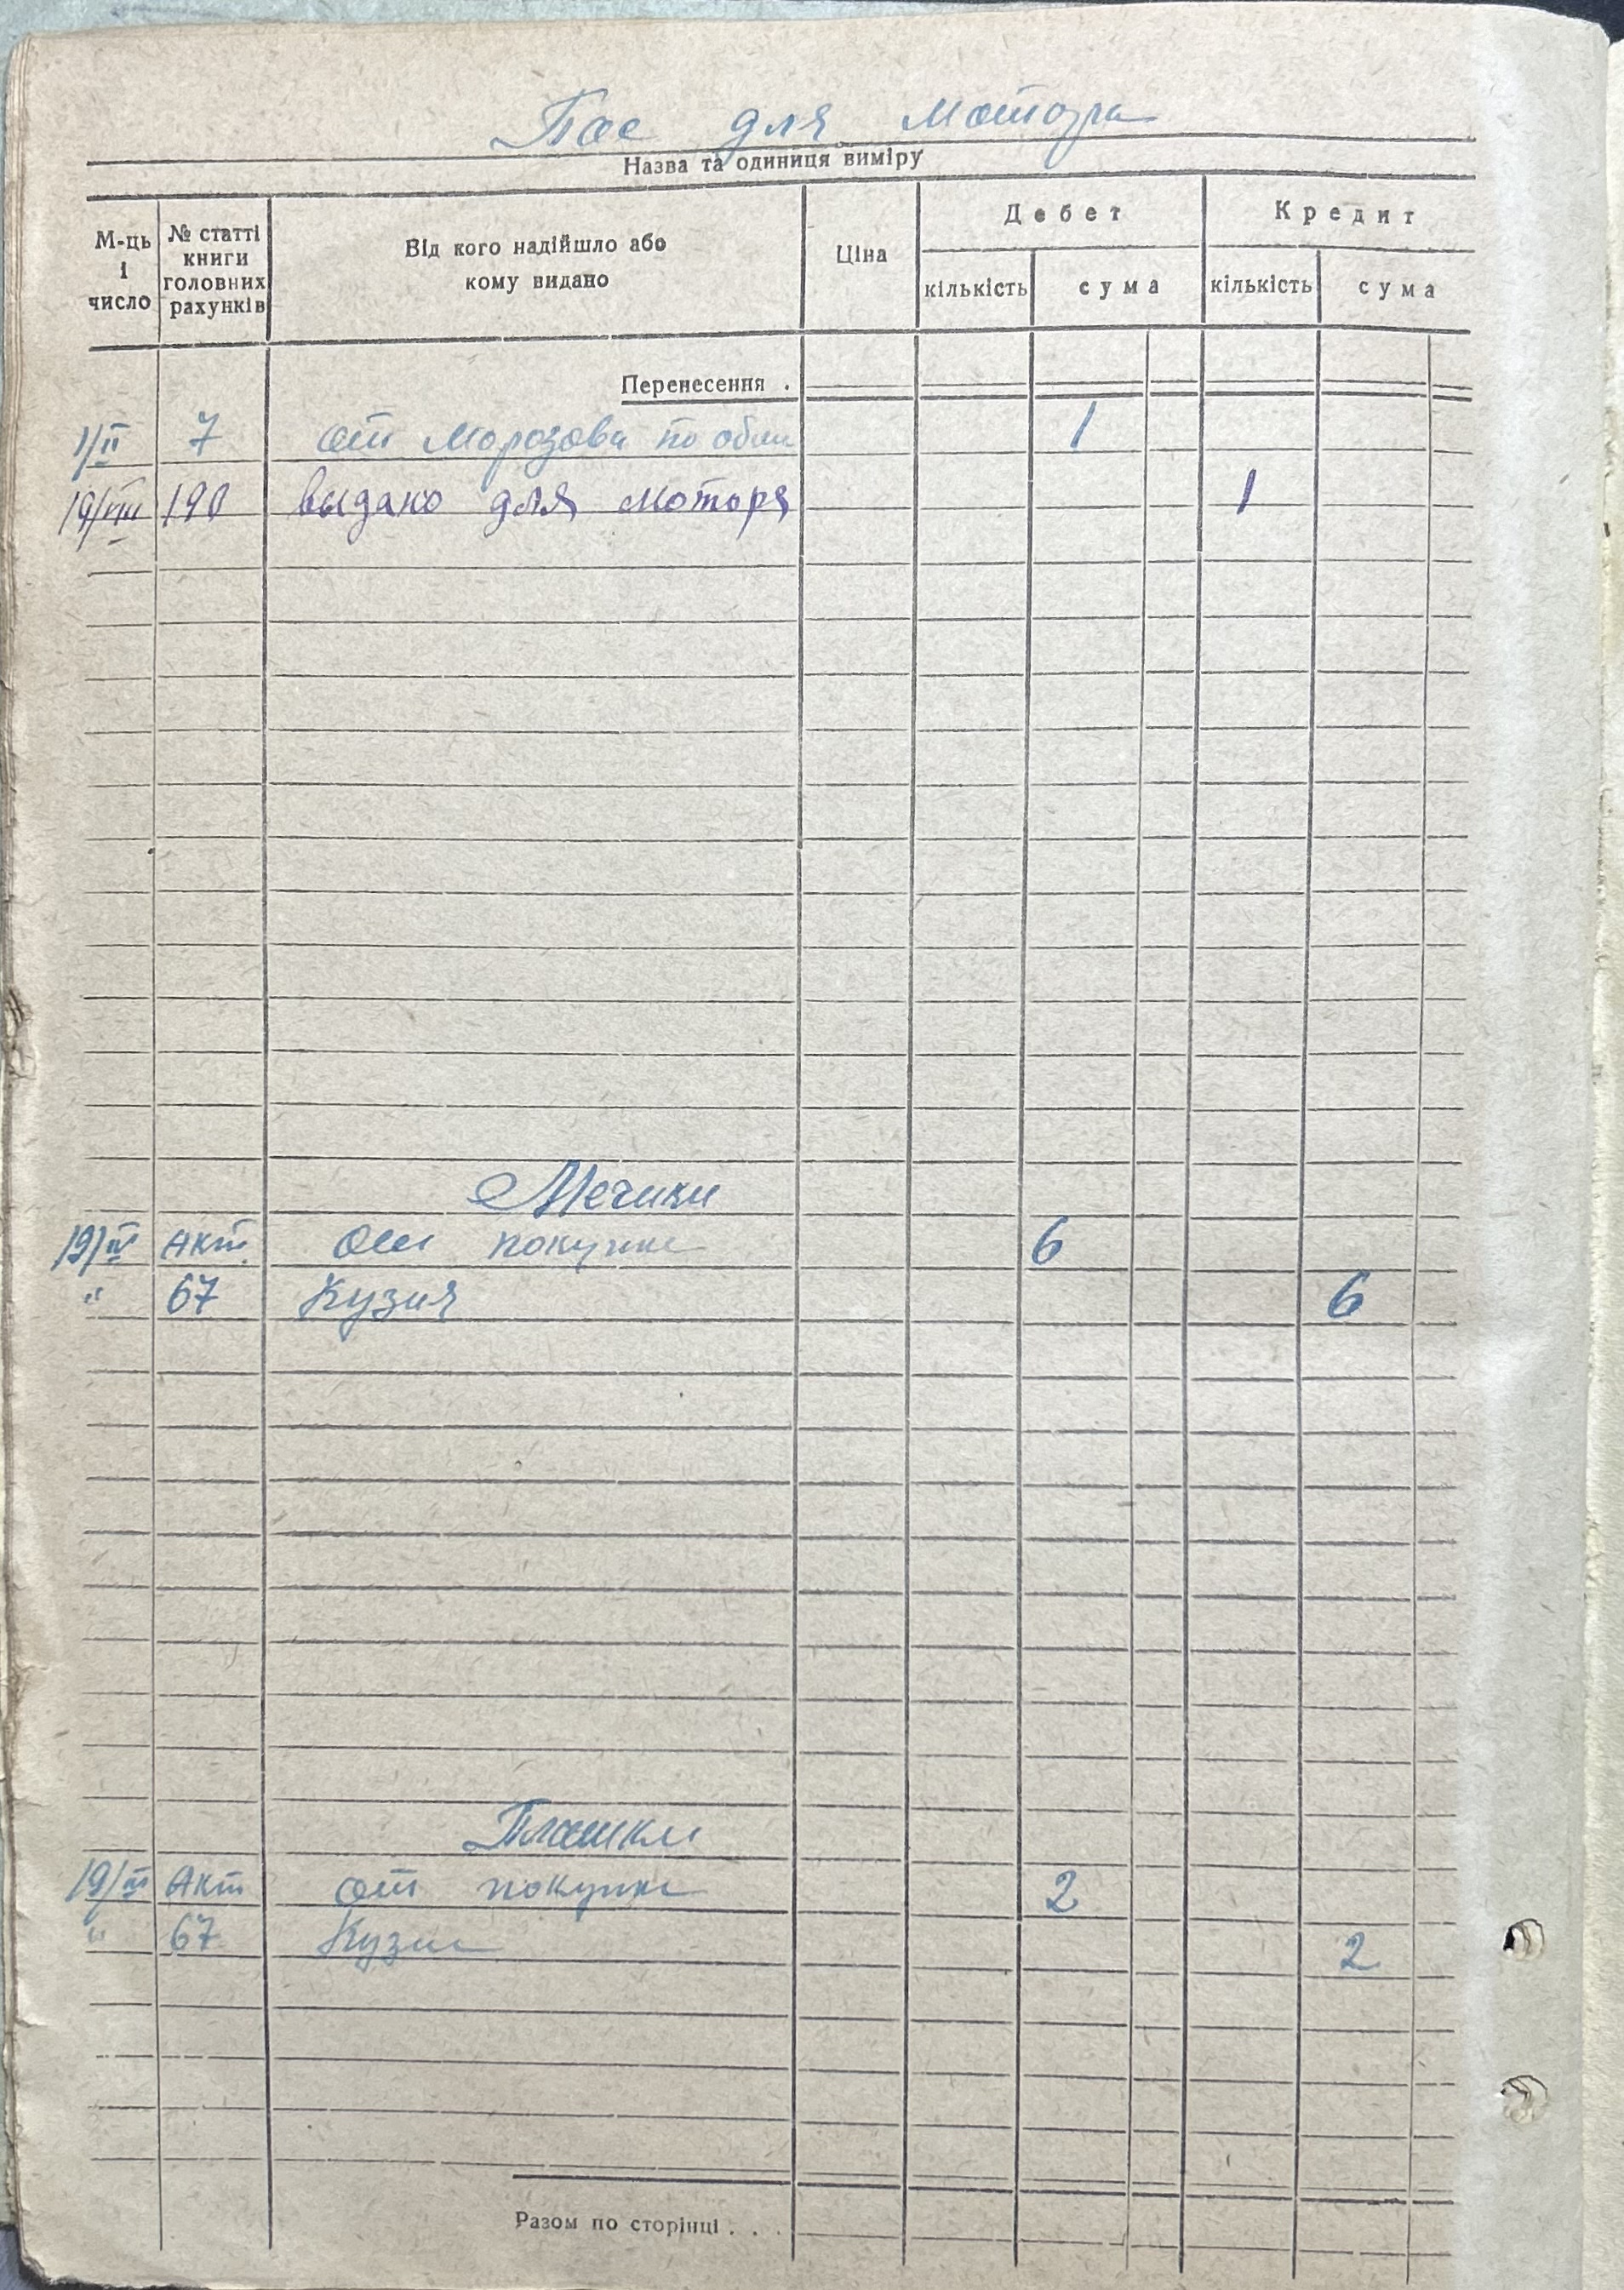 Пас для мотора
Назва та одиниця виміру
М-ць і число № статті книги головних рахунків Від кого надійшло або кому видано Ціна Дебет Кредит
кількість сума кількість сума
Перенесення .
1/II 7 от Морозова по 1
19/VIII 190 выдано для мотора 1
Мечики
19/IV Акт от покупки 6
" 67 Кузня 6
Плашки
19/IV Акт от покупки 2
" 67 Кузня 2
Разом по сторінці . . .